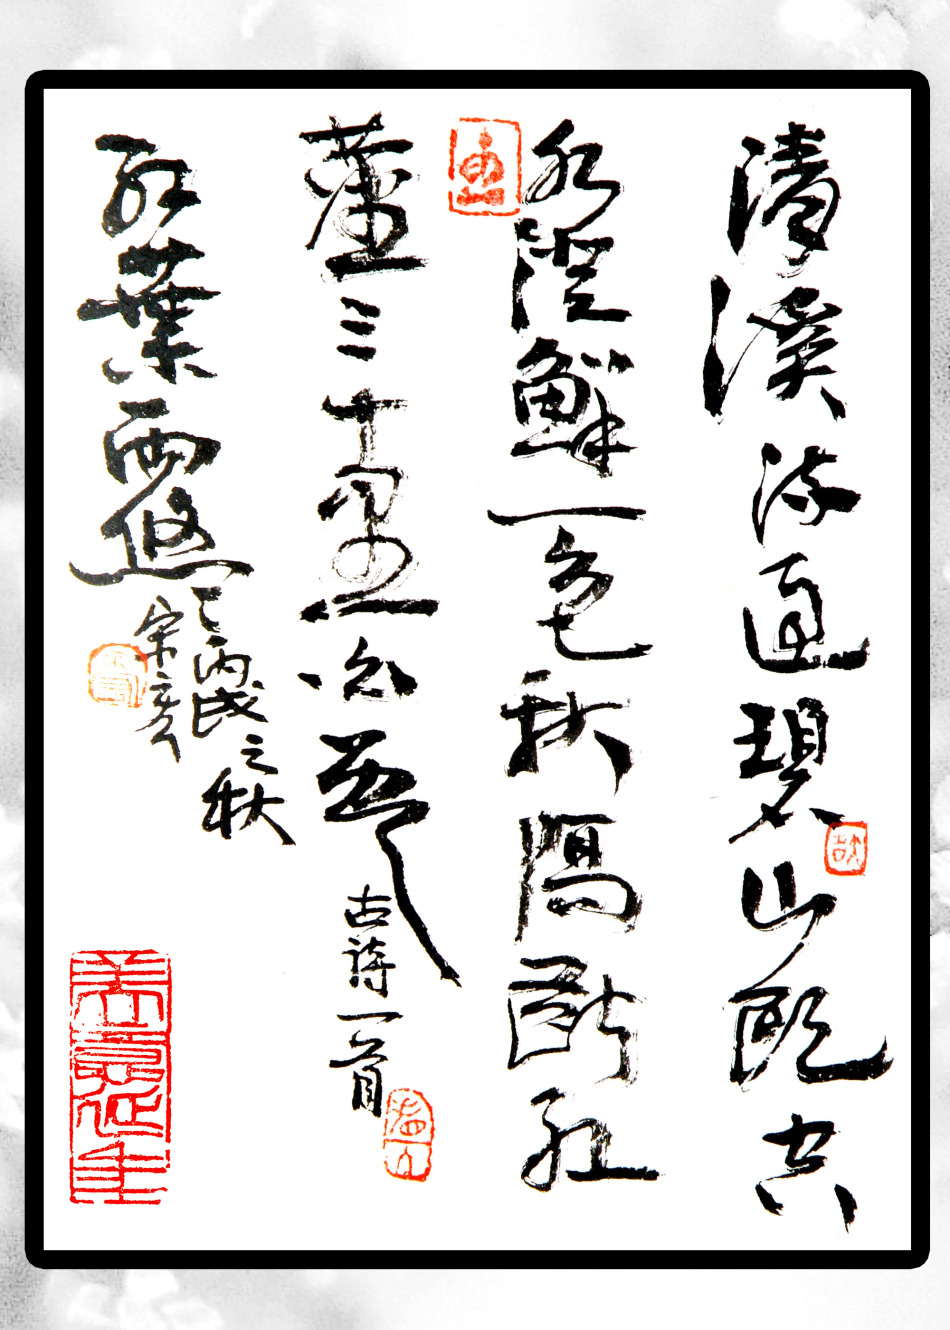 清溪流過碧山頭空
水澄鮮一色秋隔斷紅
塵三十里白雲
古詩一首
紅葉兩悠々
丙戌之秋